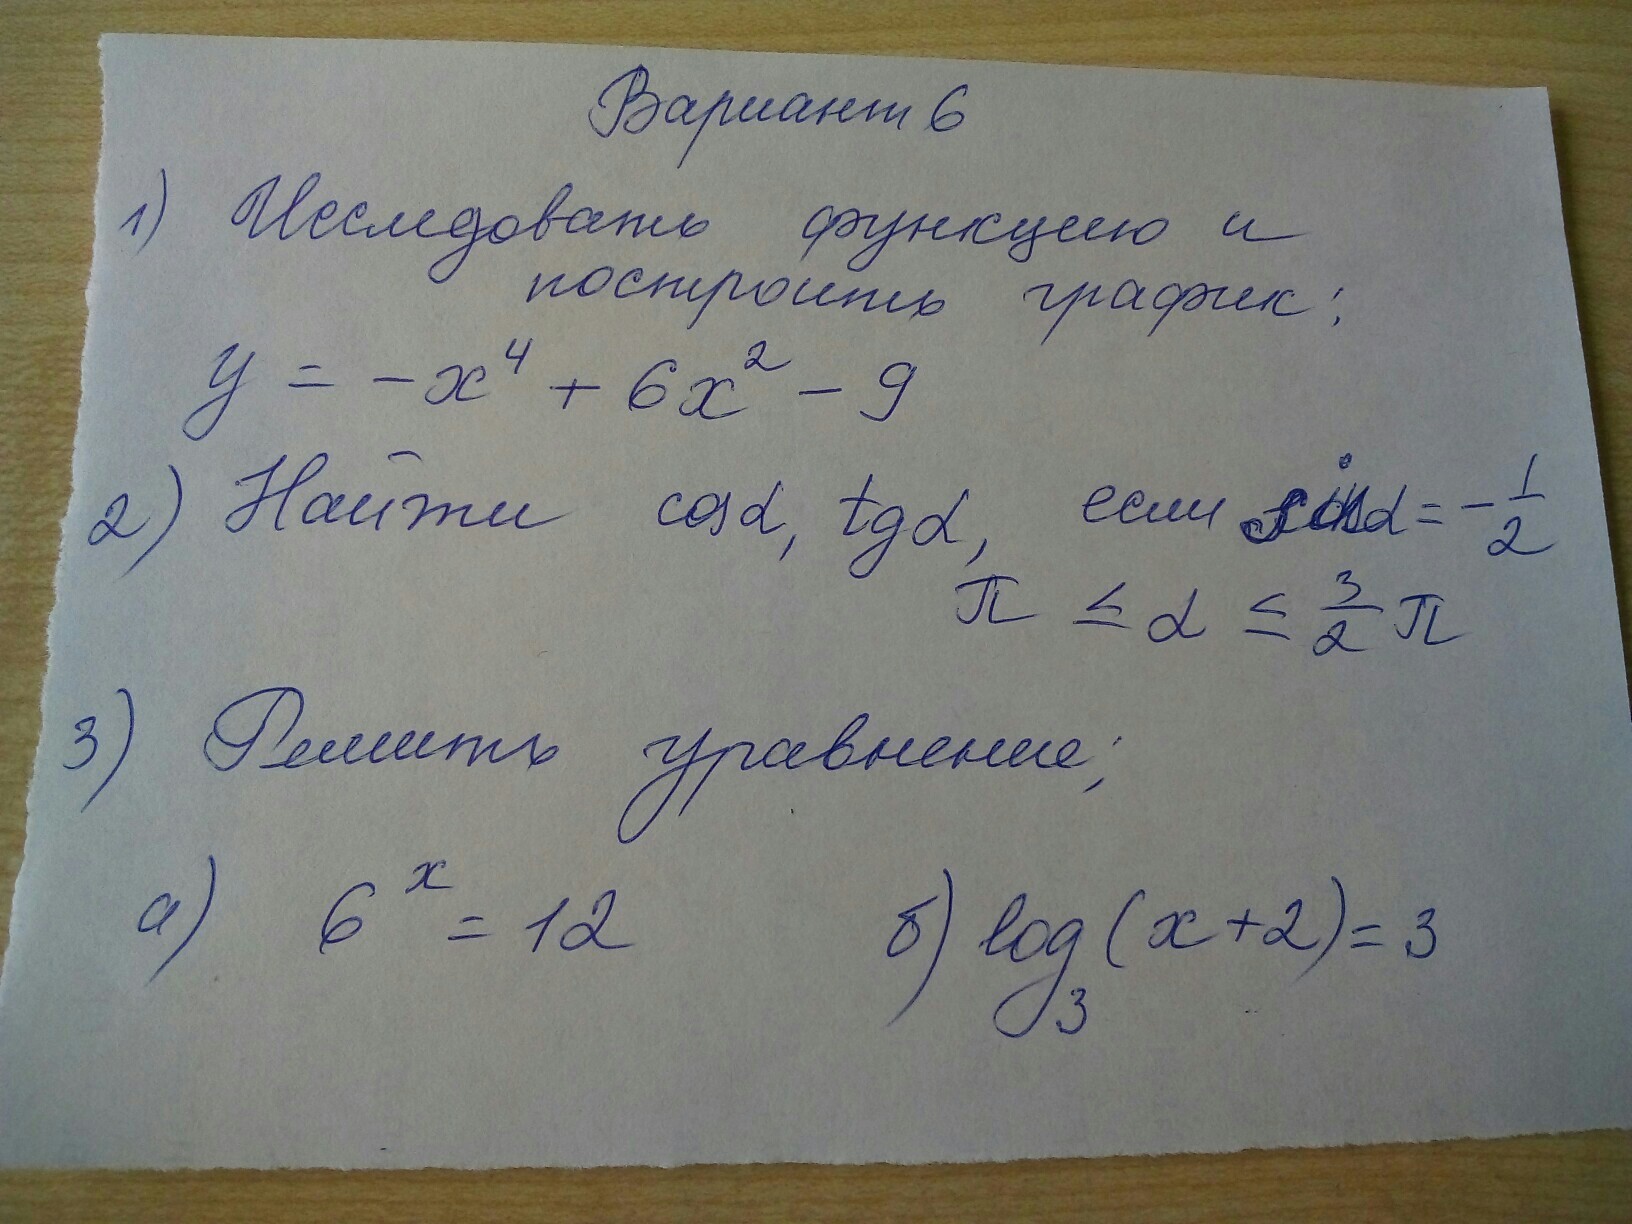 Вариант 6
1) Исследовать функцию и
построить график:
y = -x⁴ + 6x² - 9
2) Найти cosα, tgα, если sinα = -1/2
π ≤ α ≤ 3/2 π
3) Решить уравнение;
а) 6ˣ = 12 б) log₃(x+2) = 3